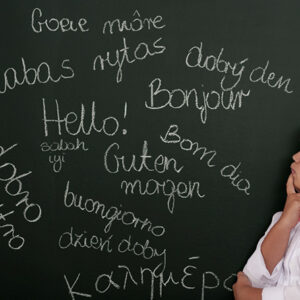 Goeie môre
Labas rytas
dobrý den
Bonjour
Hello!
sabah
iyi
Guten
morgen
Bom dia
dobro
jutro
buongiorno
dzień doby
καλημέρα